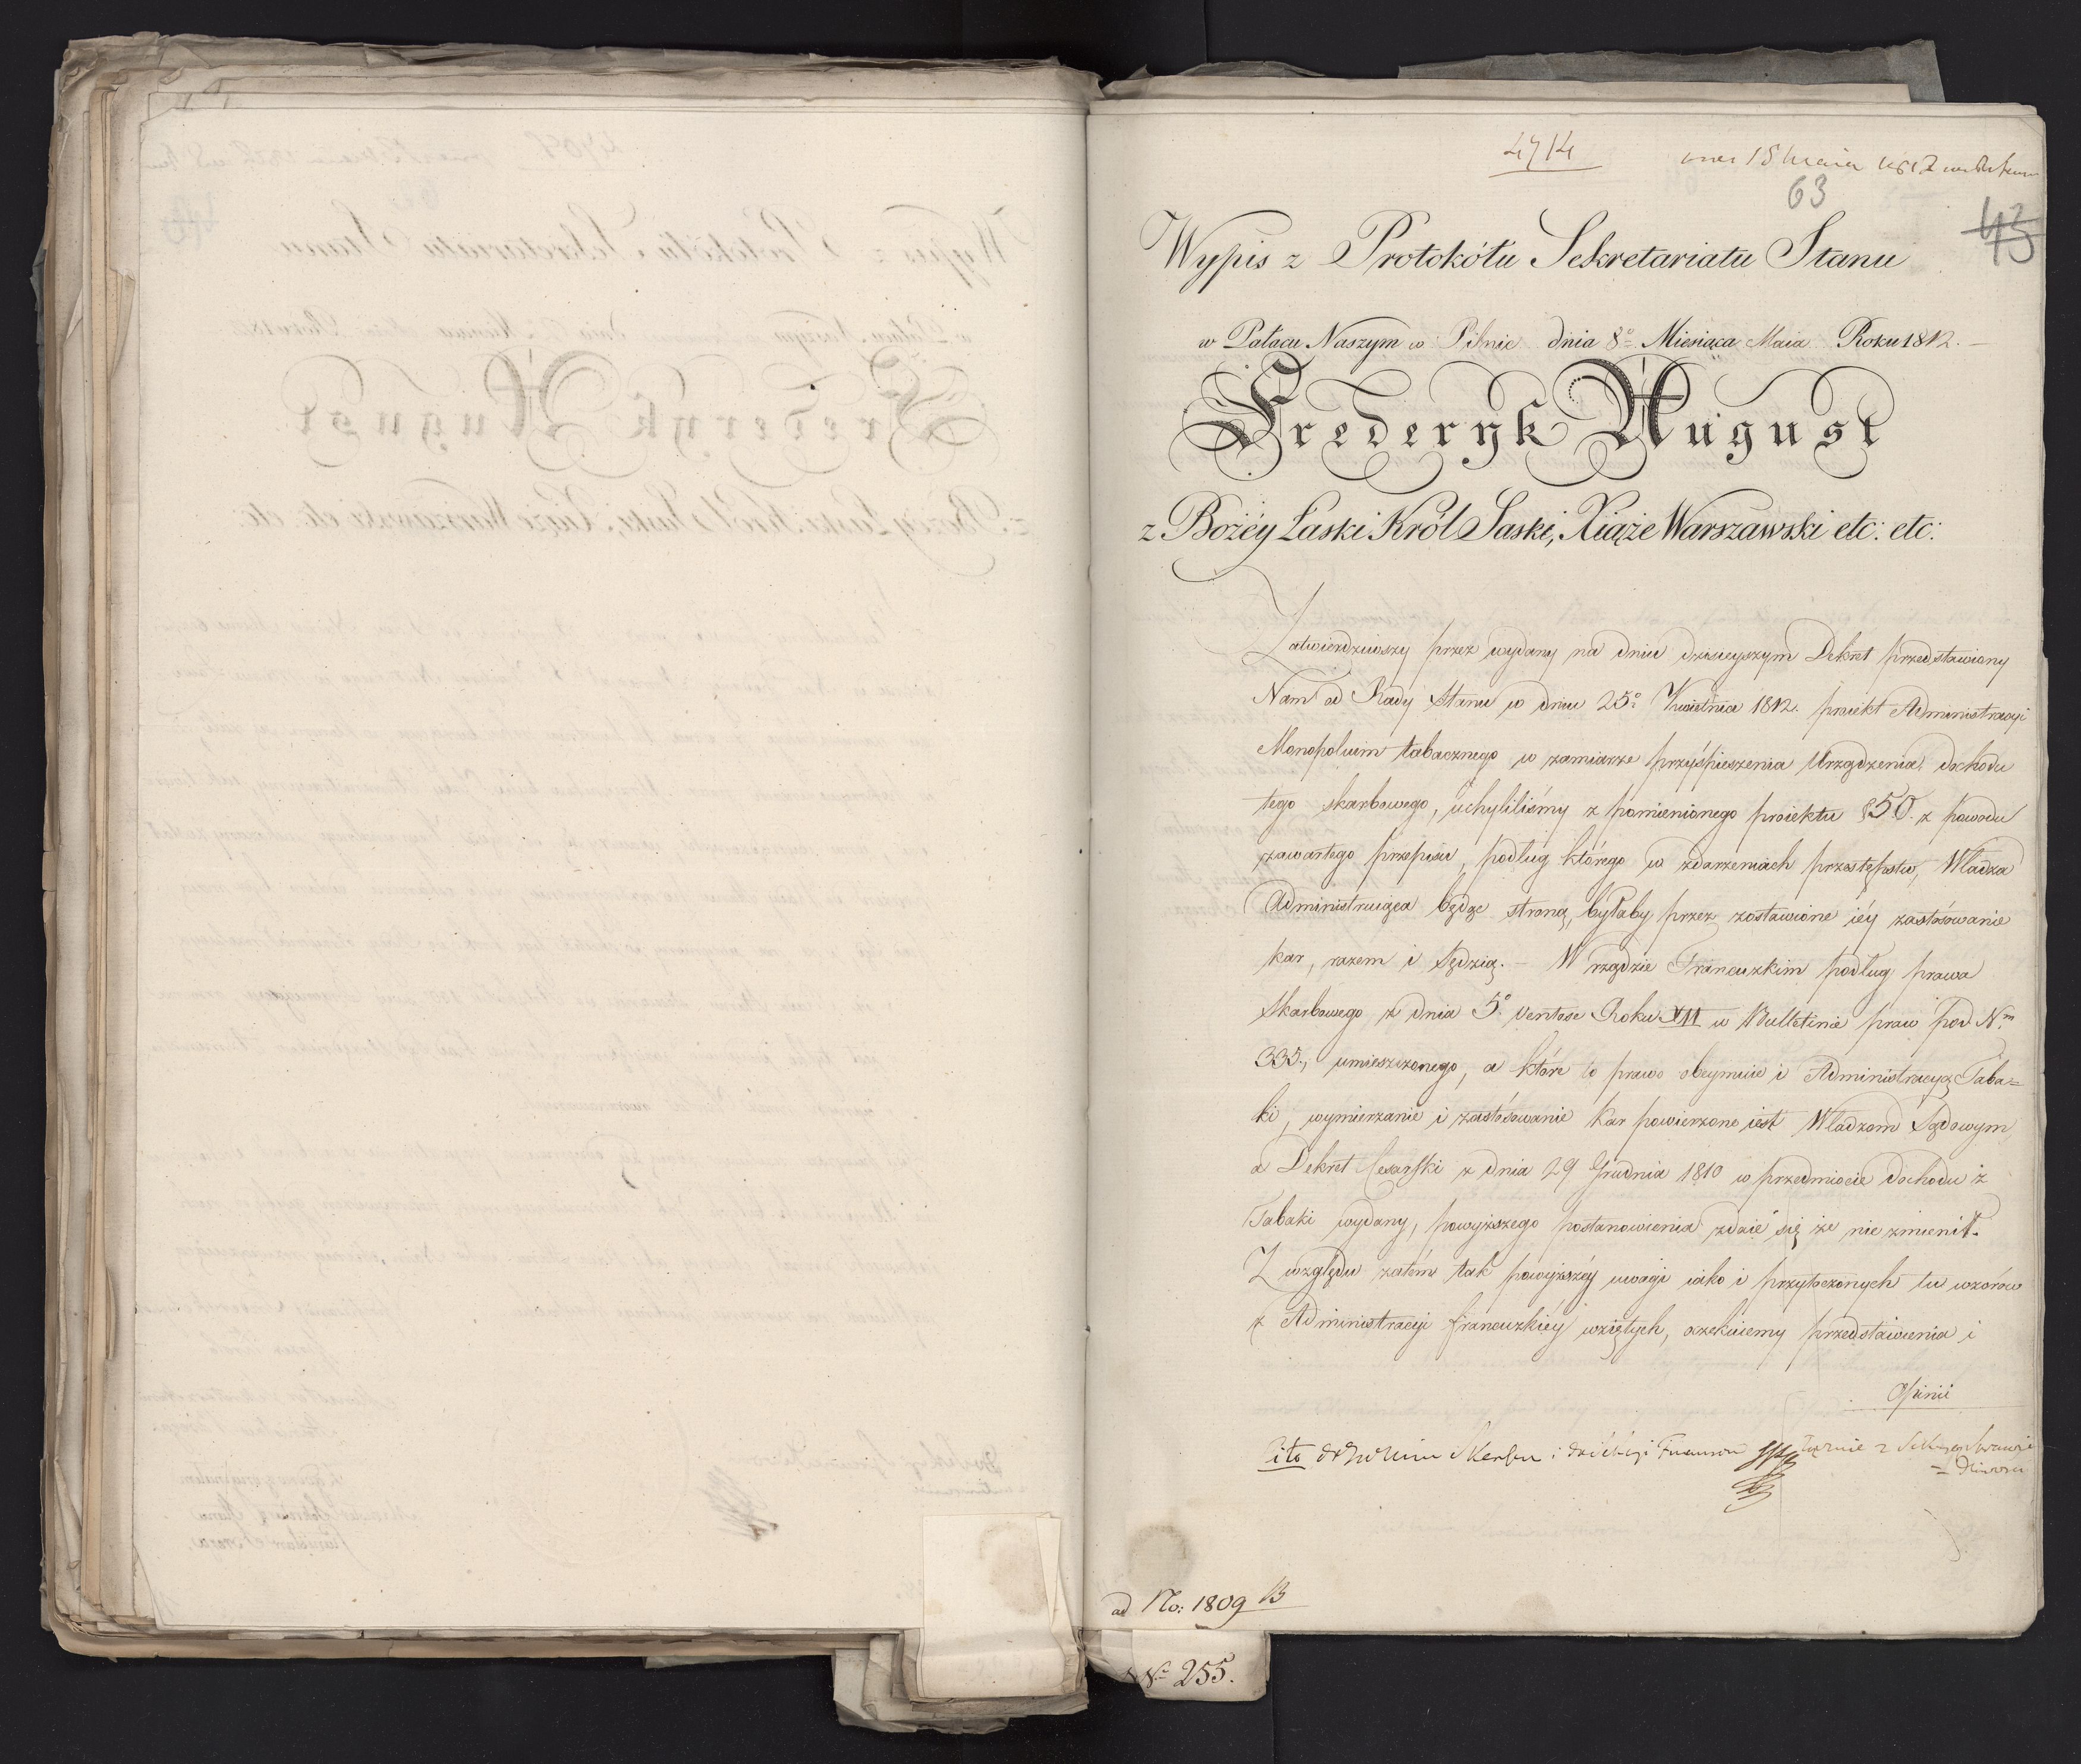 4714
18 Maia 1812
63
43
Wypis z Protokółu Sekretariatu Stanu
w Pałacu Naszym w Pilnic dnia 8º Miesiąca Maia Roku 1812. –
Frederyk August
z Bożéy Łaski Król Saski, Xiąże Warszawski etc: etc:
Zatwierdziwszy przez wydany na dniu dzisieyszym Dekret przedstawiony
Nam od Rady Stanu w dniu 25º Kwietnia 1812. proiekt Administracyi
Monopolium tabacznego w zamiarze przyśpieszenia Urządzenia dochodu
tego skarbowego, uchyliliśmy z pomienionego proiektu § 50. z powodu
zawartego przepisu, podług którego w zdarzeniach przestępstw, Władza
Administruiąca będąc stroną, byłaby przez zostawione iéy zastósowanie
kar, razem i Sędzią. – W rządzie Francuzkim podług prawa
Skarbowego z dnia 5º Ventose Roku XII w Bulletinie praw pod Nm
335., umieszczonego, a które to prawo obeymuie i Administracyą Taba=
ki, wymierzanie i zastósowanie kar powierzone iest Władzom Sądowym
a Dekret Cesarski z dnia 29 Grudnia 1810 w przedmiocie dochodu z
Tabaki wydany, powyższego postanowienia zdaie się że nie zmienił.
Z względu zatém tak powyższéy uwagi iako i przytoczonych tu wzorów
z Administracyi francuzkiéy wziętych, oczekuiemy przedstawienia i
Opinii
Skarbu i
ad No: 1809 B
Nº 255.